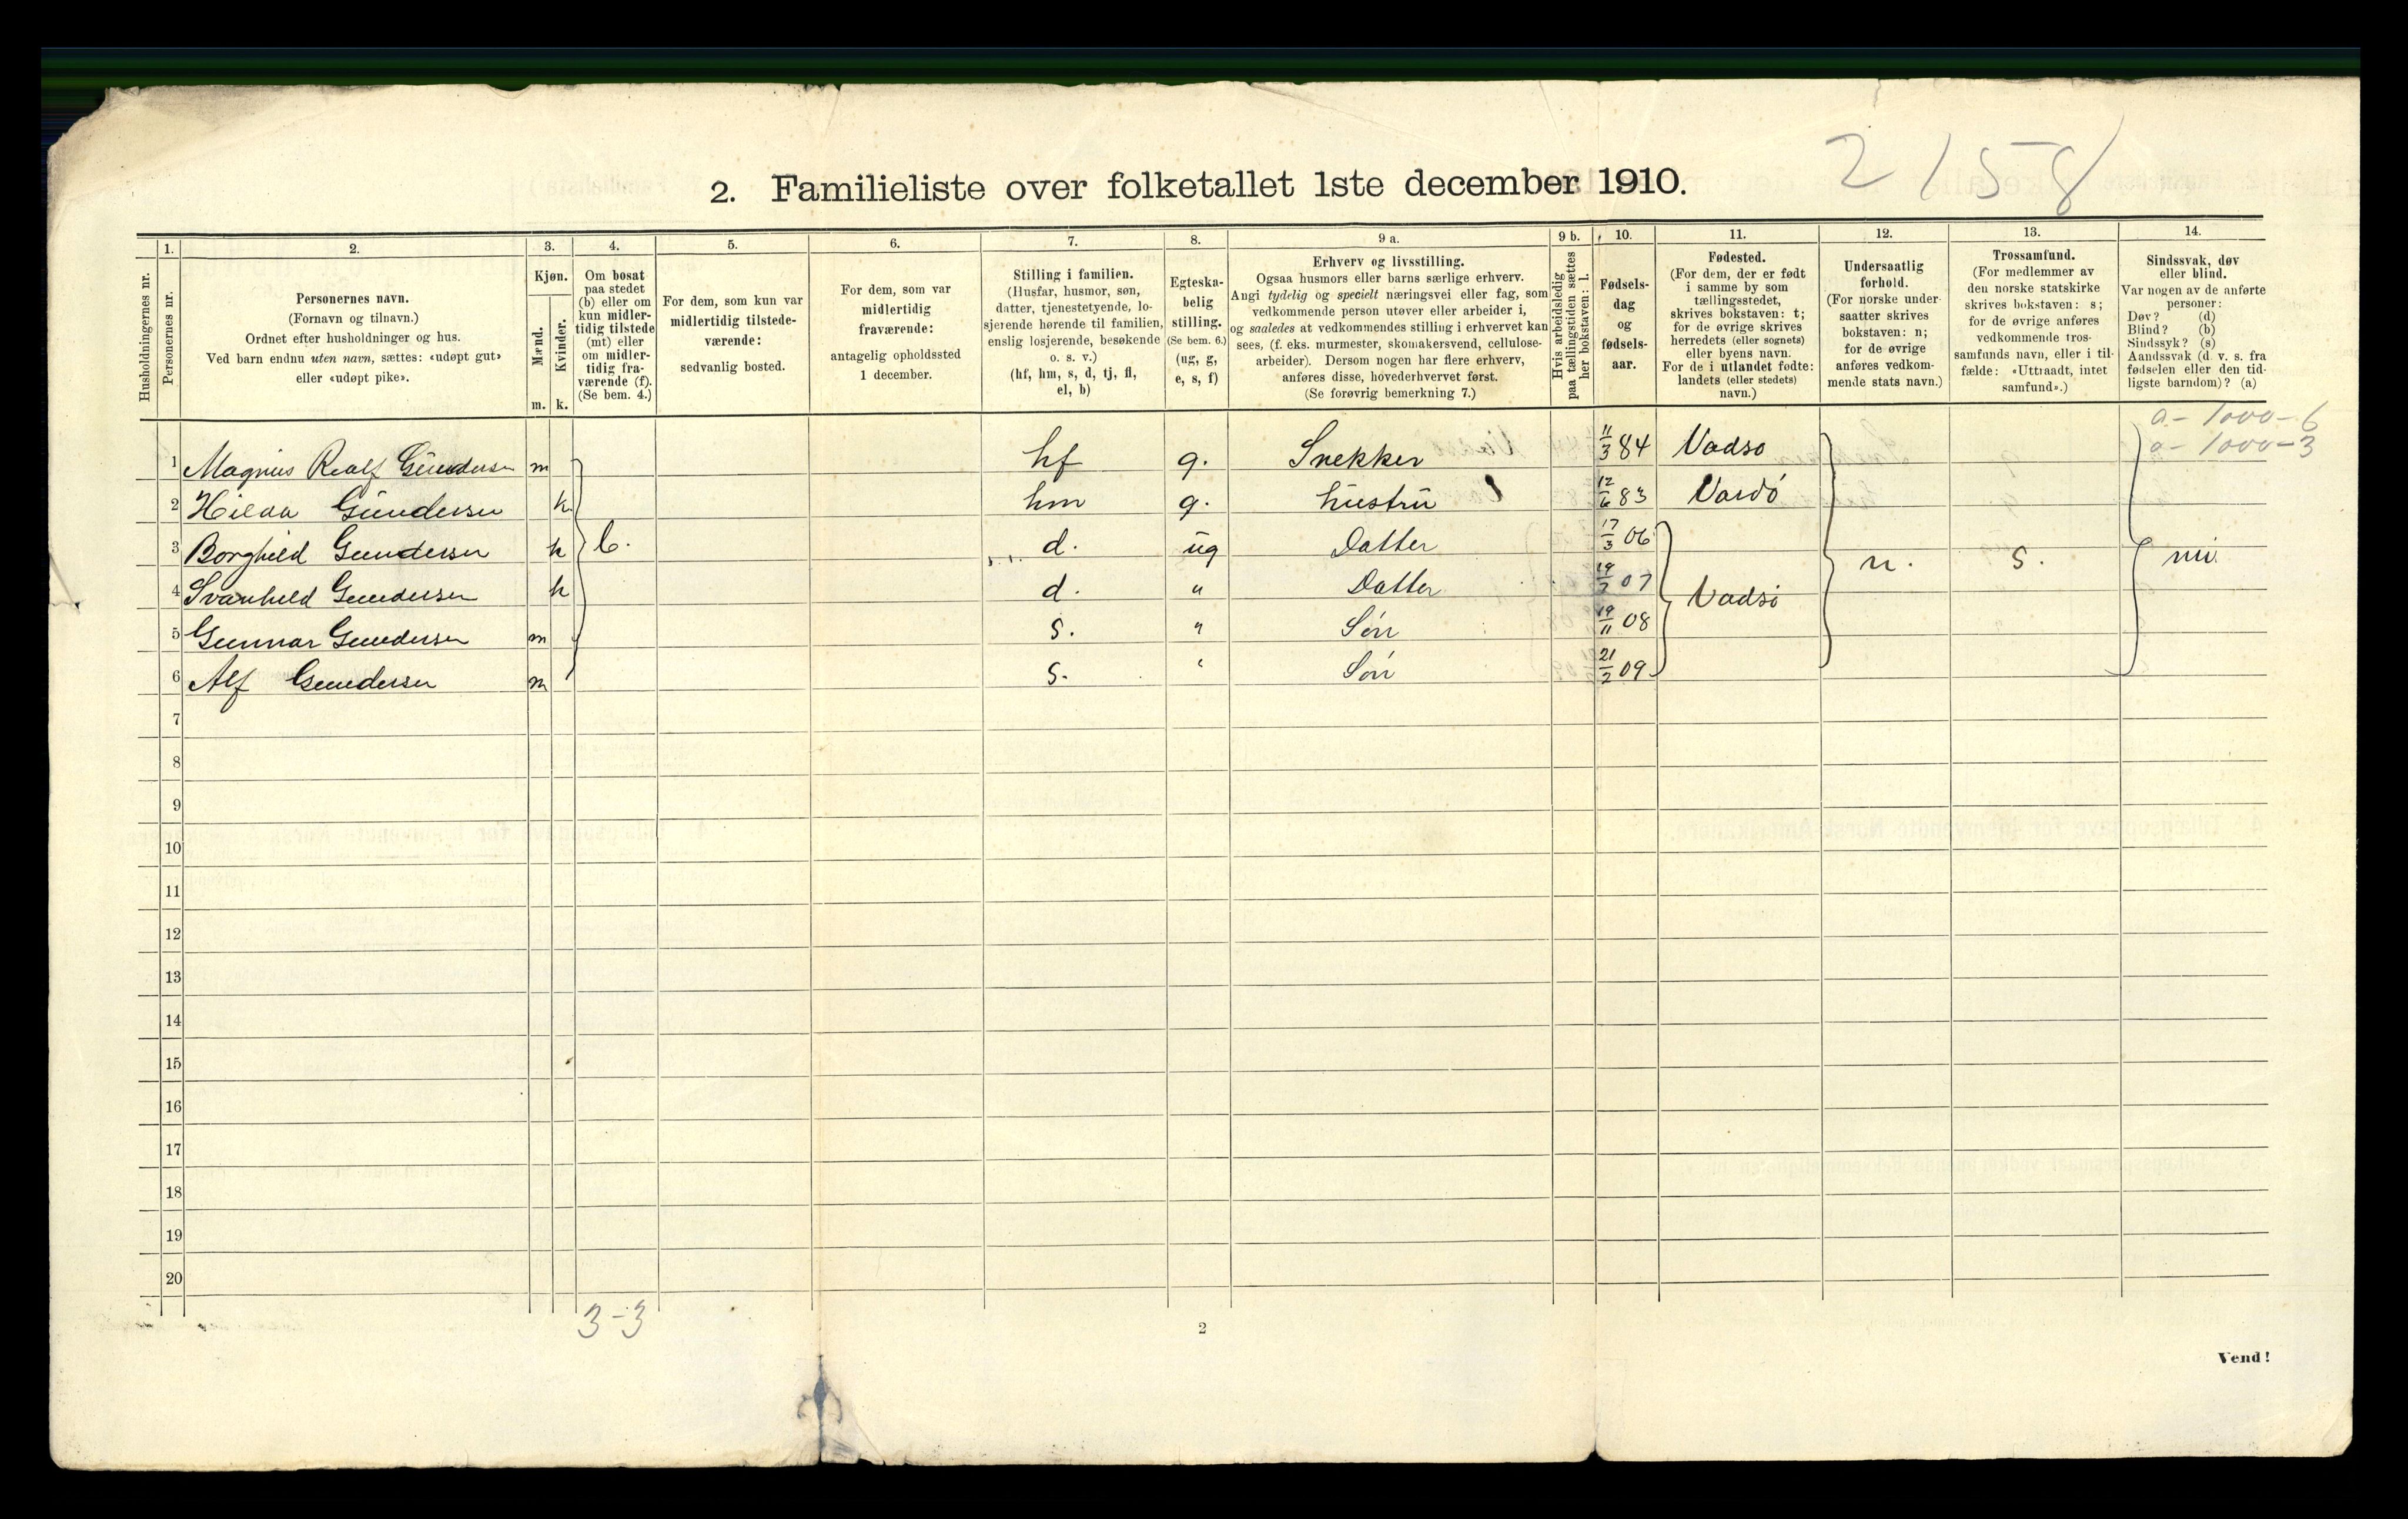 2 158
2. Familieliste over folketallet 1ste december 1910.
Husholdningernes nr.
1.
Personernes nr.
2.
Personernes navn.
(Fornavn og tilnavn.)
Ordnet efter husholdninger og hus.
Ved barn endnu uten navn, sættes: «udøpt gut»
eller «udøpt pike».
3.
Kjøn.
Mænd.
Kvinder.
m. k.
4.
Om bosat
paa stedet
(b) eller om
kun midler-
tidig tilstede
(mt) eller
om midler-
tidig fra-
værende (f).
(Se bem. 4.)
5.
For dem, som kun var
midlertidig tilstede-
værende:
sedvanlig bosted.
6.
For dem, som var
midlertidig
fraværende:
antagelig opholdssted
1 december.
7.
Stilling i familien.
(Husfar, husmor, søn,
datter, tjenestetyende, lo-
sjerende hørende til familien,
enslig losjerende, besøkende
o. s. v.)
(hf, hm, s, d, tj, fl,
el, b)
8.
Egteska-
belig
stilling.
(Se bem. 6.)
(ug, g,
e, s, f)
9 a.
Erhverv og livsstilling.
Ogsaa husmors eller barns særlige erhverv.
Angi tydelig og specielt næringsvei eller fag, som
vedkommende person utøver eller arbeider i,
og saaledes at vedkommendes stilling i erhvervet kan
sees, (f. eks. murmester, skomakersvend, cellulose-
arbeider). Dersom nogen har flere erhverv,
anføres disse, hovederhvervet først.
(Se forøvrig bemerkning 7.)
9 b.
Hvis arbeidsledig
paa tællingstiden sættes
her bokstaven: l.
10.
Fødsels-
dag
og
fødsels-
aar.
11.
Fødested.
(For dem, der er født
i samme by som
tællingsstedet,
skrives bokstaven: t;
for de øvrige skrives
herredets (eller sognets)
eller byens navn.
For de i utlandet fødte:
landets (eller stedets)
navn.)
12.
Undersaatlig
forhold.
(For norske under-
saatter skrives
bokstaven: n;
for de øvrige
anføres vedkom-
mende stats navn.)
13.
Trossamfund.
(For medlemmer av
den norske statskirke
skrives bokstaven: s;
for de øvrige anføres
vedkommende tros-
samfunds navn, eller i til-
fælde: «Uttraadt, intet
samfund».)
14.
Sindssvak, døv
eller blind.
Var nogen av de anførte
personer:
Døv? (d)
Blind? (b)
Sindssyk? (s)
Aandssvak (d. v. s. fra
fødselen eller den tid-
ligste barndom)? (a)
a - 1000 - 6
a - 1000 - 3
1 Magnus Realf Gundersen m hf g. Snekker 11/3 84 Vadso
2 Hilda Gundersen k. hm g. hustru 12/6 83 Vardö
3 Borghild Gundersen k b. d. ug Datter 17/3 06 n. s. nei
4 Svanhild Gundersen k d. " Datter 19/7 07 Vadsö
5 Gunnar Gundersen m s. " Sön 19/11 08
6 Alf Gundersen m s. " Sön 21/2 09
7
8
9
10
11
12
13
14
15
16
17
18
19
20
3-3
2
Vend!